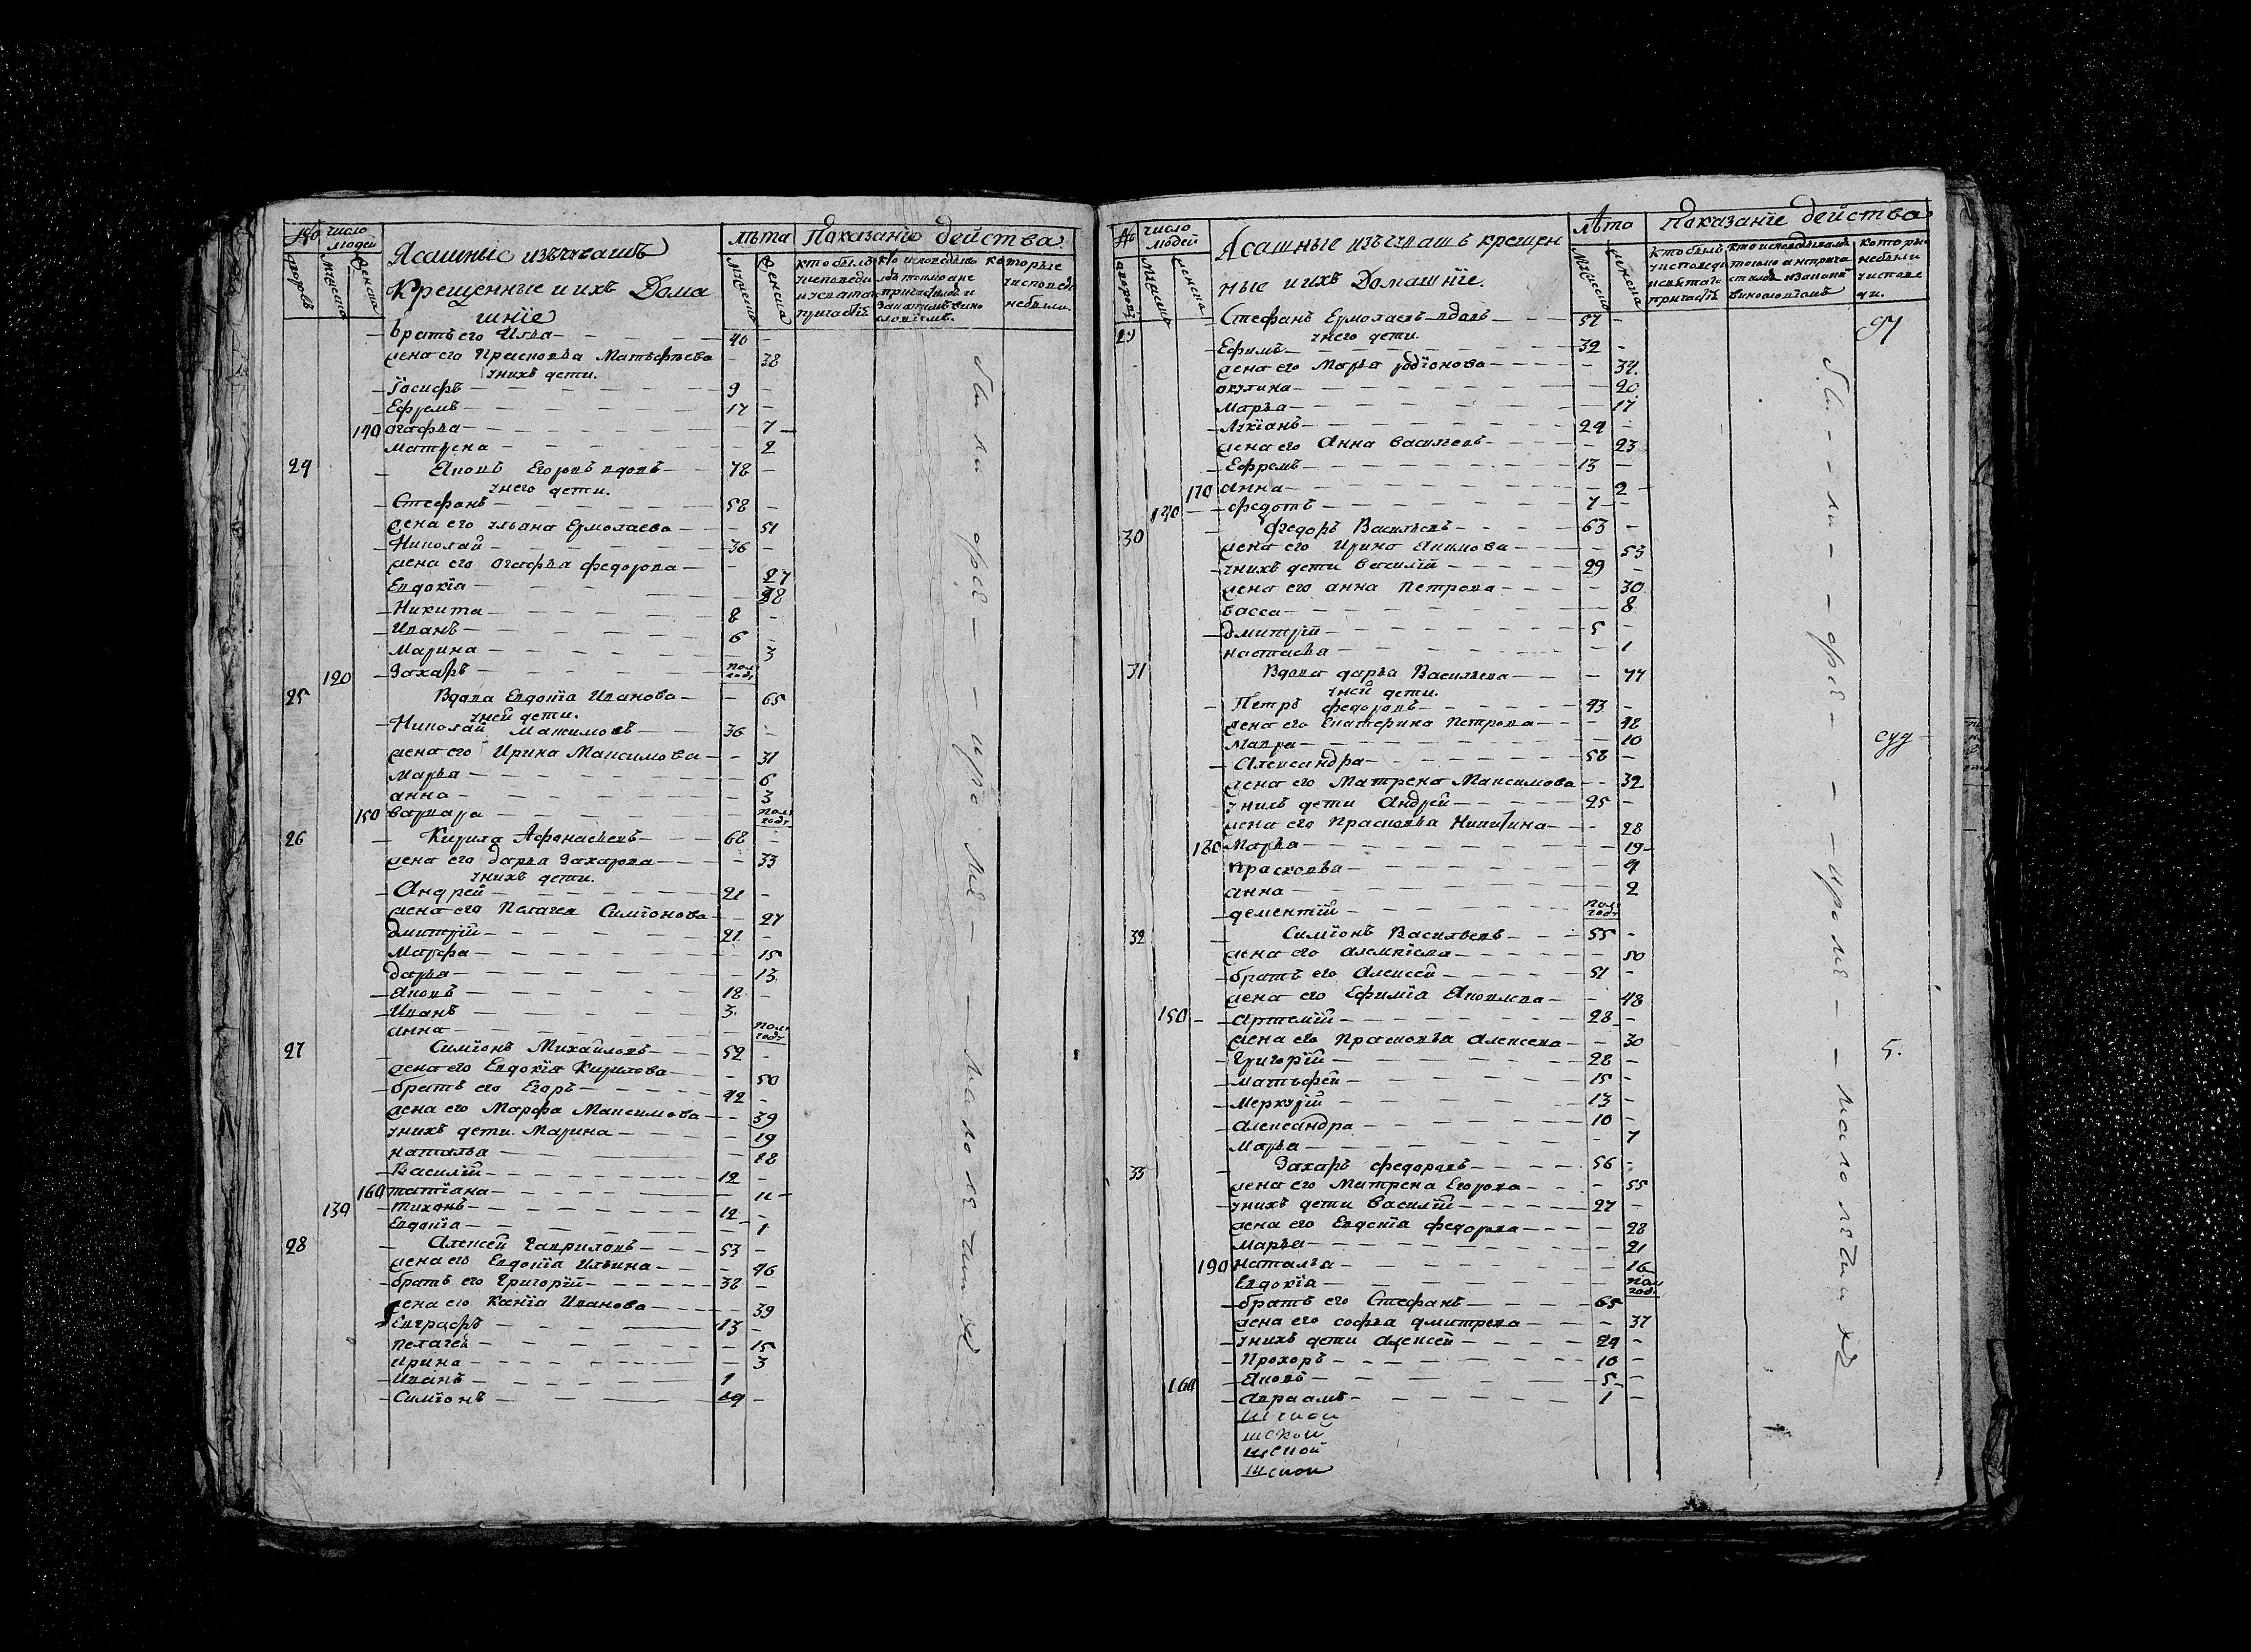 № дворовъ
число людей
мужеска
женска
Ясашные изъ чувашъ
Крещенные и ихъ Дома
шнiе
лѣта
мужеска
женска
Показанiе действа
кто былъ
у исповеди
и у святаго
причастiя
Которые
у исповеди
небыли
братъ его Илья 40
жена его Прасковья Матьфѣева 38
у нихъ дети.
Iосифъ 9
Ефремъ 17
140 агафья 7
матрена 2
24 Яковъ Егоровъ вдовъ 78
у него дети.
Стефанъ 58
жена его ульяна Ермолаева 51
Николай 36
жена его агафья федорова 27
Евдокiя
Никита 8
Иванъ 6
Марина 3
120 Захаръ пол года
25 Вдова Евдокiя Иванова 65
у ней дети.
Николай Максимовъ 36
жена его Ирина Максимова 31
Марья 6
анна 3
150 варвара пол года
26 Кирила Афонасьевъ 68
жена его дарья Захарова 33
у нихъ дети.
Андрей 21
жена его Пелагея Симiонова 27
дмитрiй 21
Марфа 15
дарья 13
Яковъ 12
Иванъ 3
анна пол года
27 Симiонъ Михайловъ 52
жена его Евдокiя Кирилова 50
братъ его Егоръ 42
жена его Марфа Максимова 39
у нихъ дети Марина 19
наталья 18
Василiй 12
160 татiана 11
130 тихонъ 12
Евдокiя 1
28 Алексей Гавриловъ 53
жена его Евдокiя Ильина 46
братъ его Григорiй 32
жена его Ксенiя Иванова 39
Евграфъ 13
пелагея 15
ирина 3
Иванъ 1
Симiонъ
были при исповеди
№ дворовъ
число людей
мужеска
женска
Ясашные изъ чувашъ крещен
ные и ихъ Домашнiе.
лѣто
мужеска
женска
Показанiе действа
кто былъ
у исповеди
и святаго
причастiя
которые
небыли
у исповеди
29 Стефанъ Ермолаевъ вдовъ 57
у него дети.
Ефимъ 32
жена его Марья родiонова 32
акулина 20
марья 17
Лукiанъ 24
жена его Анна васильева 23
Ефремъ 13
170 анна 2
140 федотъ 7
30 Федоръ Васильевъ 63
жена его Ирина Акимова 53
у нихъ дети василiй 29
жена его анна Петрова 30
васса 8
дмитрiй 5
настасья 1
31 Вдова дарья Васильева 77
у ней дети.
Петръ федоровъ 43
жена его Екатерина Петрова 42
мавра 10
Александра 58
жена его Матрена Максимова 32
у нихъ дети Андрей 25
жена его Прасковья Никитина 28
180 Марья 19
Прасковья 4
анна 2
дементiй пол года
32 Симiонъ Васильевъ 55
жена его 50
братъ его Алексей 51
жена его Ефимiя Яковлева 48
150 Артемiй 28
жена его Прасковья Алексева 30
Григорiй 28
матьфей 15
Меркурiй 13
Александра 10
Марья 7
33 Захаръ федоровъ 56
жена его Матрена Егорова 55
у нихъ дети Василiй 27
жена его Евдокiя федорова 28
Марья 21
190 наталья 16
Евдокiя пол года
братъ его Стефанъ 65
жена его софья дмитрева 37
у нихъ дети алексей 24
Прохоръ 10
160 Яковъ 5
Авраамъ 1